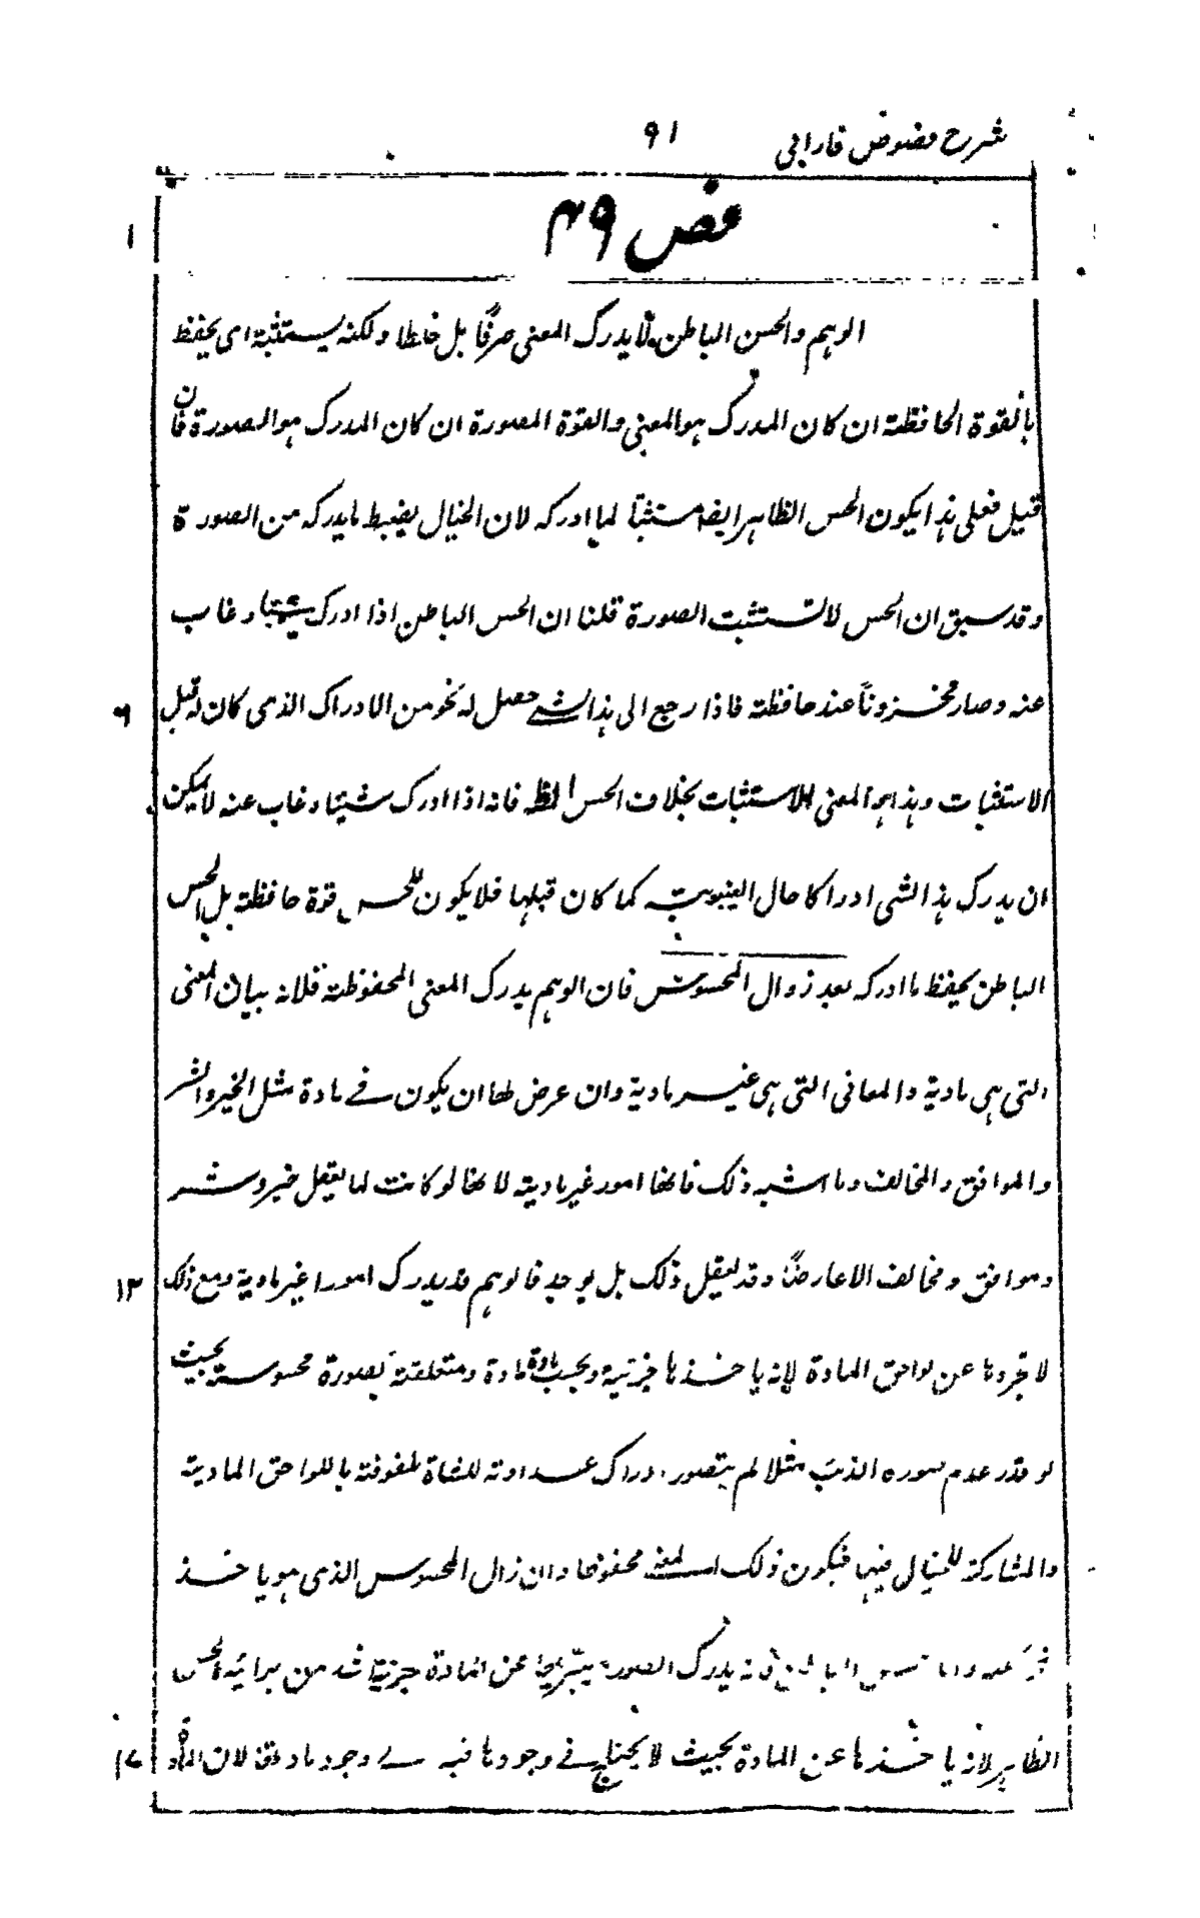 شرح فصوص فارابی ۹۱
فص ۴۹
۱
الوہم والحس الباطن لا یدرک المعنی صرفًا بل خلطا ولکنہ یستثبتہ ای یحفظ
بالقوۃ الحافظۃ ان کان المدرک ہو المعنی والقوۃ المصورۃ ان کان المدرک ہو الصورۃ فان
قیل فعلی ہذا یکون الحس الظاہر ایضا مستثبتاً لما ادرکہ لان الخیال یضبط ما یدرکہ من الصورۃ
وقد سبق ان الحس لا تستثبت الصورۃ قلنا ان الحس الباطن اذا ادرک شیئا وغاب
عنہ وصار مخزوناً عند حافظۃ فاذا رجع الی ہذا الشے حصل لہ نحو من الادراک الذی کان لہ قبل
۶
الاستثبات وہذا ہو المعنی بالاستثبات بخلاف الحس الظ فانہ اذا ادرک شیئا وغاب عنہ لا یمکن
ان یدرک ہذا الشی ادراکا حال الغیبوبۃ کما کان قبلہا فلا یکون للحس قوۃ حافظۃ بل الحس
الباطن یحفظ ما ادرکہ بعد زوال المحسوس فان الوہم یدرک المعنی المحفوظۃ فلانہ بیان المعنی
التی ہی مادیۃ والمعانی التی ہی غیر مادیۃ وان عرض لھا ان یکون فے مادۃ مثل الخیر والشر
والموافق والمخالف وما اشبہ ذلک فانھا امور غیر مادیۃ لانھا لو کانت لما یعقل خیر وشر
وموافق ومخالف الا عارضًا وقد یعقل ذلک بل یوجد فالوہم قد یدرک امورا غیر مادیۃ ومع ذلک
۱۲
لا تجردہا عن لواحق المادۃ لانہ یاخذہا جزئیۃ وبحسب مادۃ مادۃ ومتعلقۃ بصورۃ محسوسۃ بحیث
لو قدر عدم صورہ الذئب مثلا لم یتصور ادراک عداوتہ للشاۃ ملفوفۃ باللواحق المادیۃ
والمشارکۃ للخیال فیہا فیکون ذلک المعنے محفوظا وان زال المحسوس الذی ہو یاخذ
یدرک الصورۃ عن المادۃ من الحس
الظاہر لانہ یاخذہا عن المادۃ بحیث لا یحتاج فے وجودہا فیہ لے وجود مادتھا لان المادۃ
۱۷